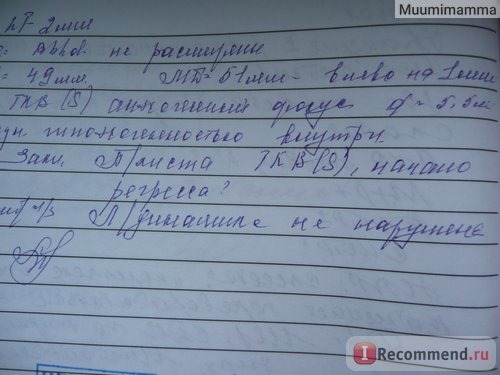 Muumimamma
ЛТ - 2 мм
не расширен
= 49 мм. МД = 51 мм - влево на 1 мм
ТКВ(S) анэхогенный фокус d ~ 5,5 мм
гипоэхогенностью внутри.
Закл. П/киста ТКВ(S), начало
регресса?
ч/з П/динамика не нарушена
IRecommend.ru